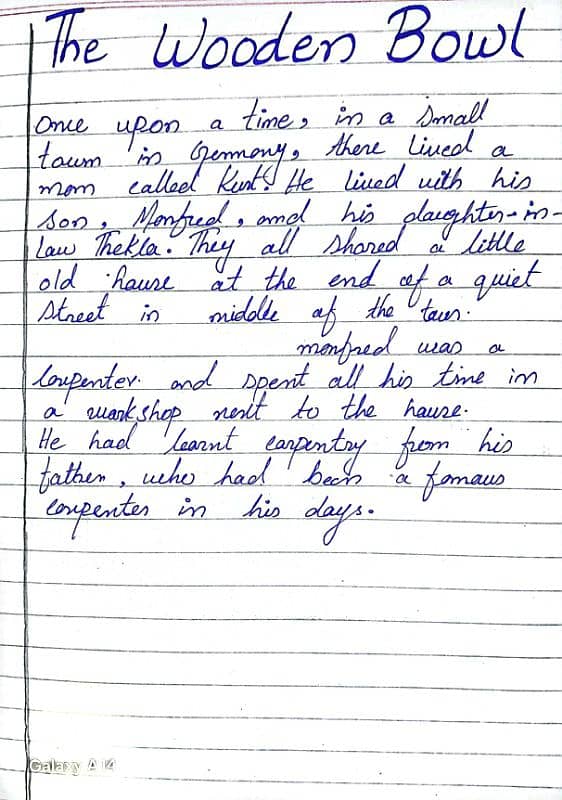 The Wooden Bowl
Once upon a time, in a small
town in Germany, there lived a
man called Kurt. He lived with his
son, Manfred, and his daughter-in-
law Thekla. They all shared a little
old house at the end of a quiet
street in middle of the town.
manfred was a
carpenter. and spent all his time in
a workshop next to the house.
He had learnt carpentry from his
father, who had been a famous
carpenter in his days.
Galaxy A14